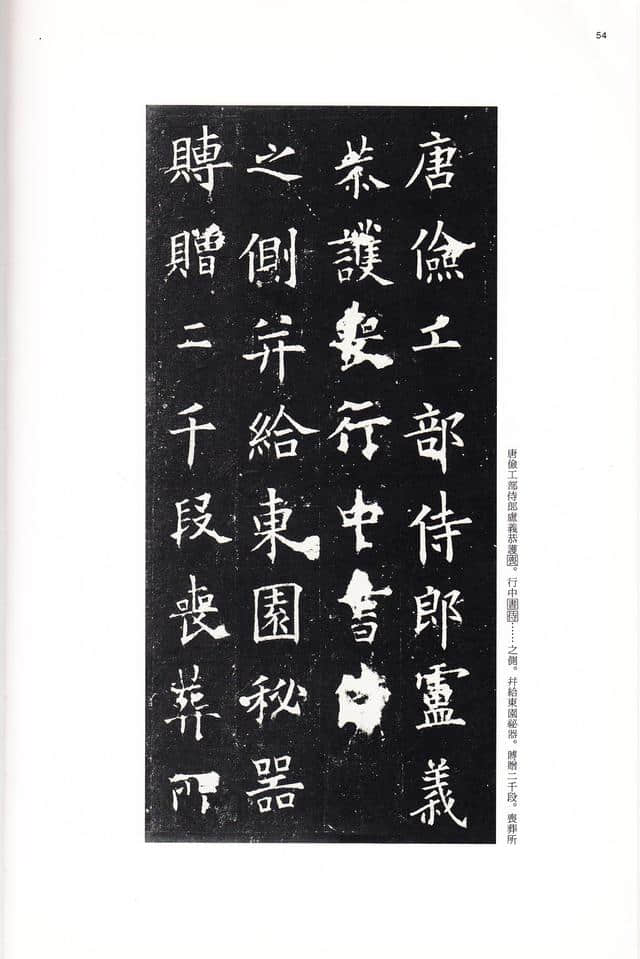 54
唐儉工部侍郎盧義
恭護喪行中書
之側并給東園秘器
賻贈二千段喪葬所
唐儉工部侍郎盧義恭護喪。行中書侍……之側。幷給東園祕器。賻贈二千段。喪葬所